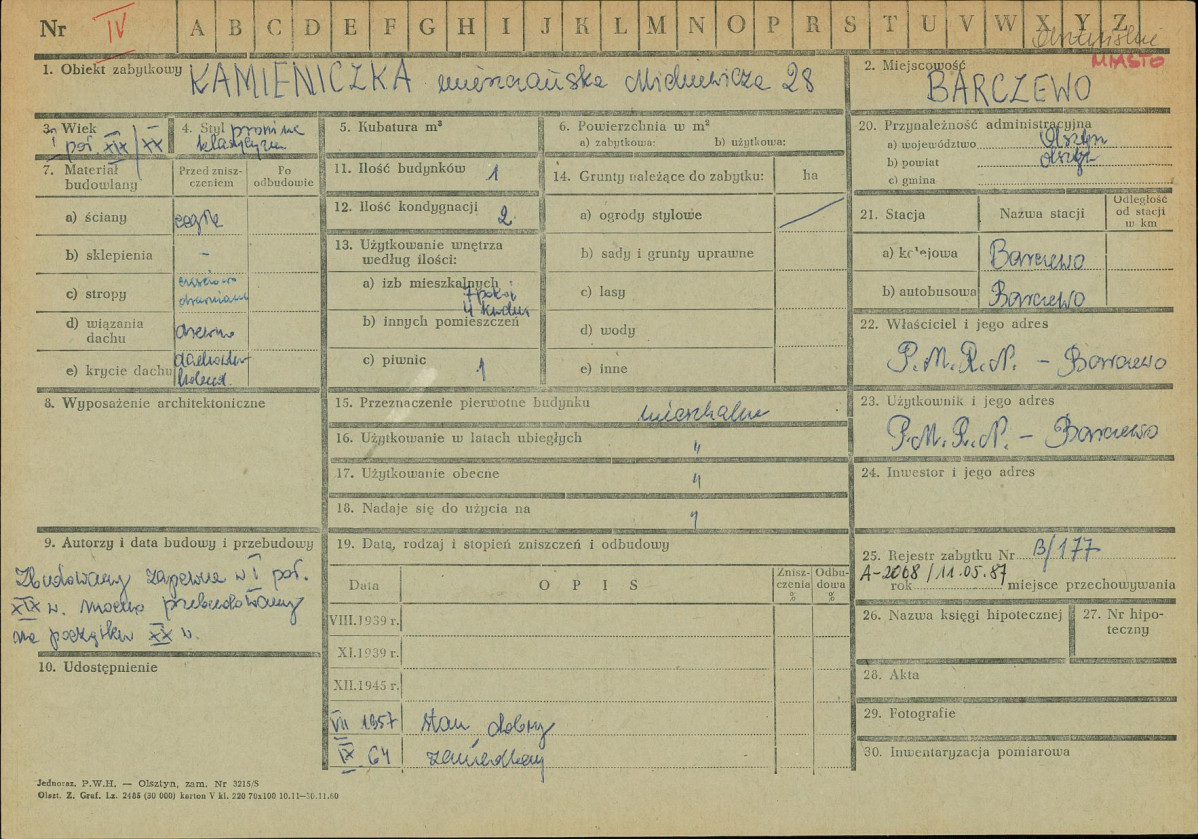 Nr IV A B C D E F G H I J K L M N O P R S T U V W X Y Z
MIASTO
1. Obiekt zabytkowy KAMIENICZKA mieszczańska Mickiewicza 28
2. Miejscowość BARCZEWO
3. Wiek I poł. XIX/XX
4. Styl prowinc klasycyzm
5. Kubatura m³
6. Powierzchnia w m²
a) zabytkowa: b) użytkowa:
7. Materiał budowlany
Przed znisz-
czeniem
Po
odbudowie
a) ściany cegła
b) sklepienia -
c) stropy drewniane
d) wiązania
dachu drewno
e) krycie dachu dachówka
holend.
8. Wyposażenie architektoniczne
9. Autorzy i data budowy i przebudowy
Zbudowany zapewne w I poł.
XIX w. mocno przebudowany
na początku XX w.
10. Udostępnienie
11. Ilość budynków 1
12. Ilość kondygnacji 2
13. Użytkowanie wnętrza
według ilości:
a) izb mieszkalnych 7 pokoi
4 kuchni
b) innych pomieszczeń
c) piwnic 1
14. Grunty należące do zabytku: ha
a) ogrody stylowe
b) sady i grunty uprawne
c) lasy
d) wody
e) inne
15. Przeznaczenie pierwotne budynku mieszkalne
16. Użytkowanie w latach ubiegłych "
17. Użytkowanie obecne "
18. Nadaje się do użycia na "
19. Data, rodzaj i stopień zniszczeń i odbudowy
Data OPIS Znisz-
czenia
% Odbu-
dowa
%
VIII.1939 r.
XI.1939 r.
XII.1945 r.
VII 1957 stan dobry
IX 64 zaniedbany
20. Przynależność administracyjna
a) województwo Olsztyn
b) powiat Olszt
c) gmina
21. Stacja Nazwa stacji Odległość
od stacji
w km
a) kolejowa Barczewo
b) autobusowa Barczewo
22. Właściciel i jego adres
P.M.R.N. - Barczewo
23. Użytkownik i jego adres
P.M.R.N. - Barczewo
24. Inwestor i jego adres
25. Rejestr zabytku Nr B/177
A-2008/11.05.87
rok miejsce przechowywania
26. Nazwa księgi hipotecznej
27. Nr hipo-
teczny
28. Akta
29. Fotografie
30. Inwentaryzacja pomiarowa
Jednoraz. P.W.H. — Olsztyn, zam. Nr 3215/S
Olszt. Z. Graf. Lz. 2485 (30 000) karton V kl. 220 70x100 10.11—30.11.60